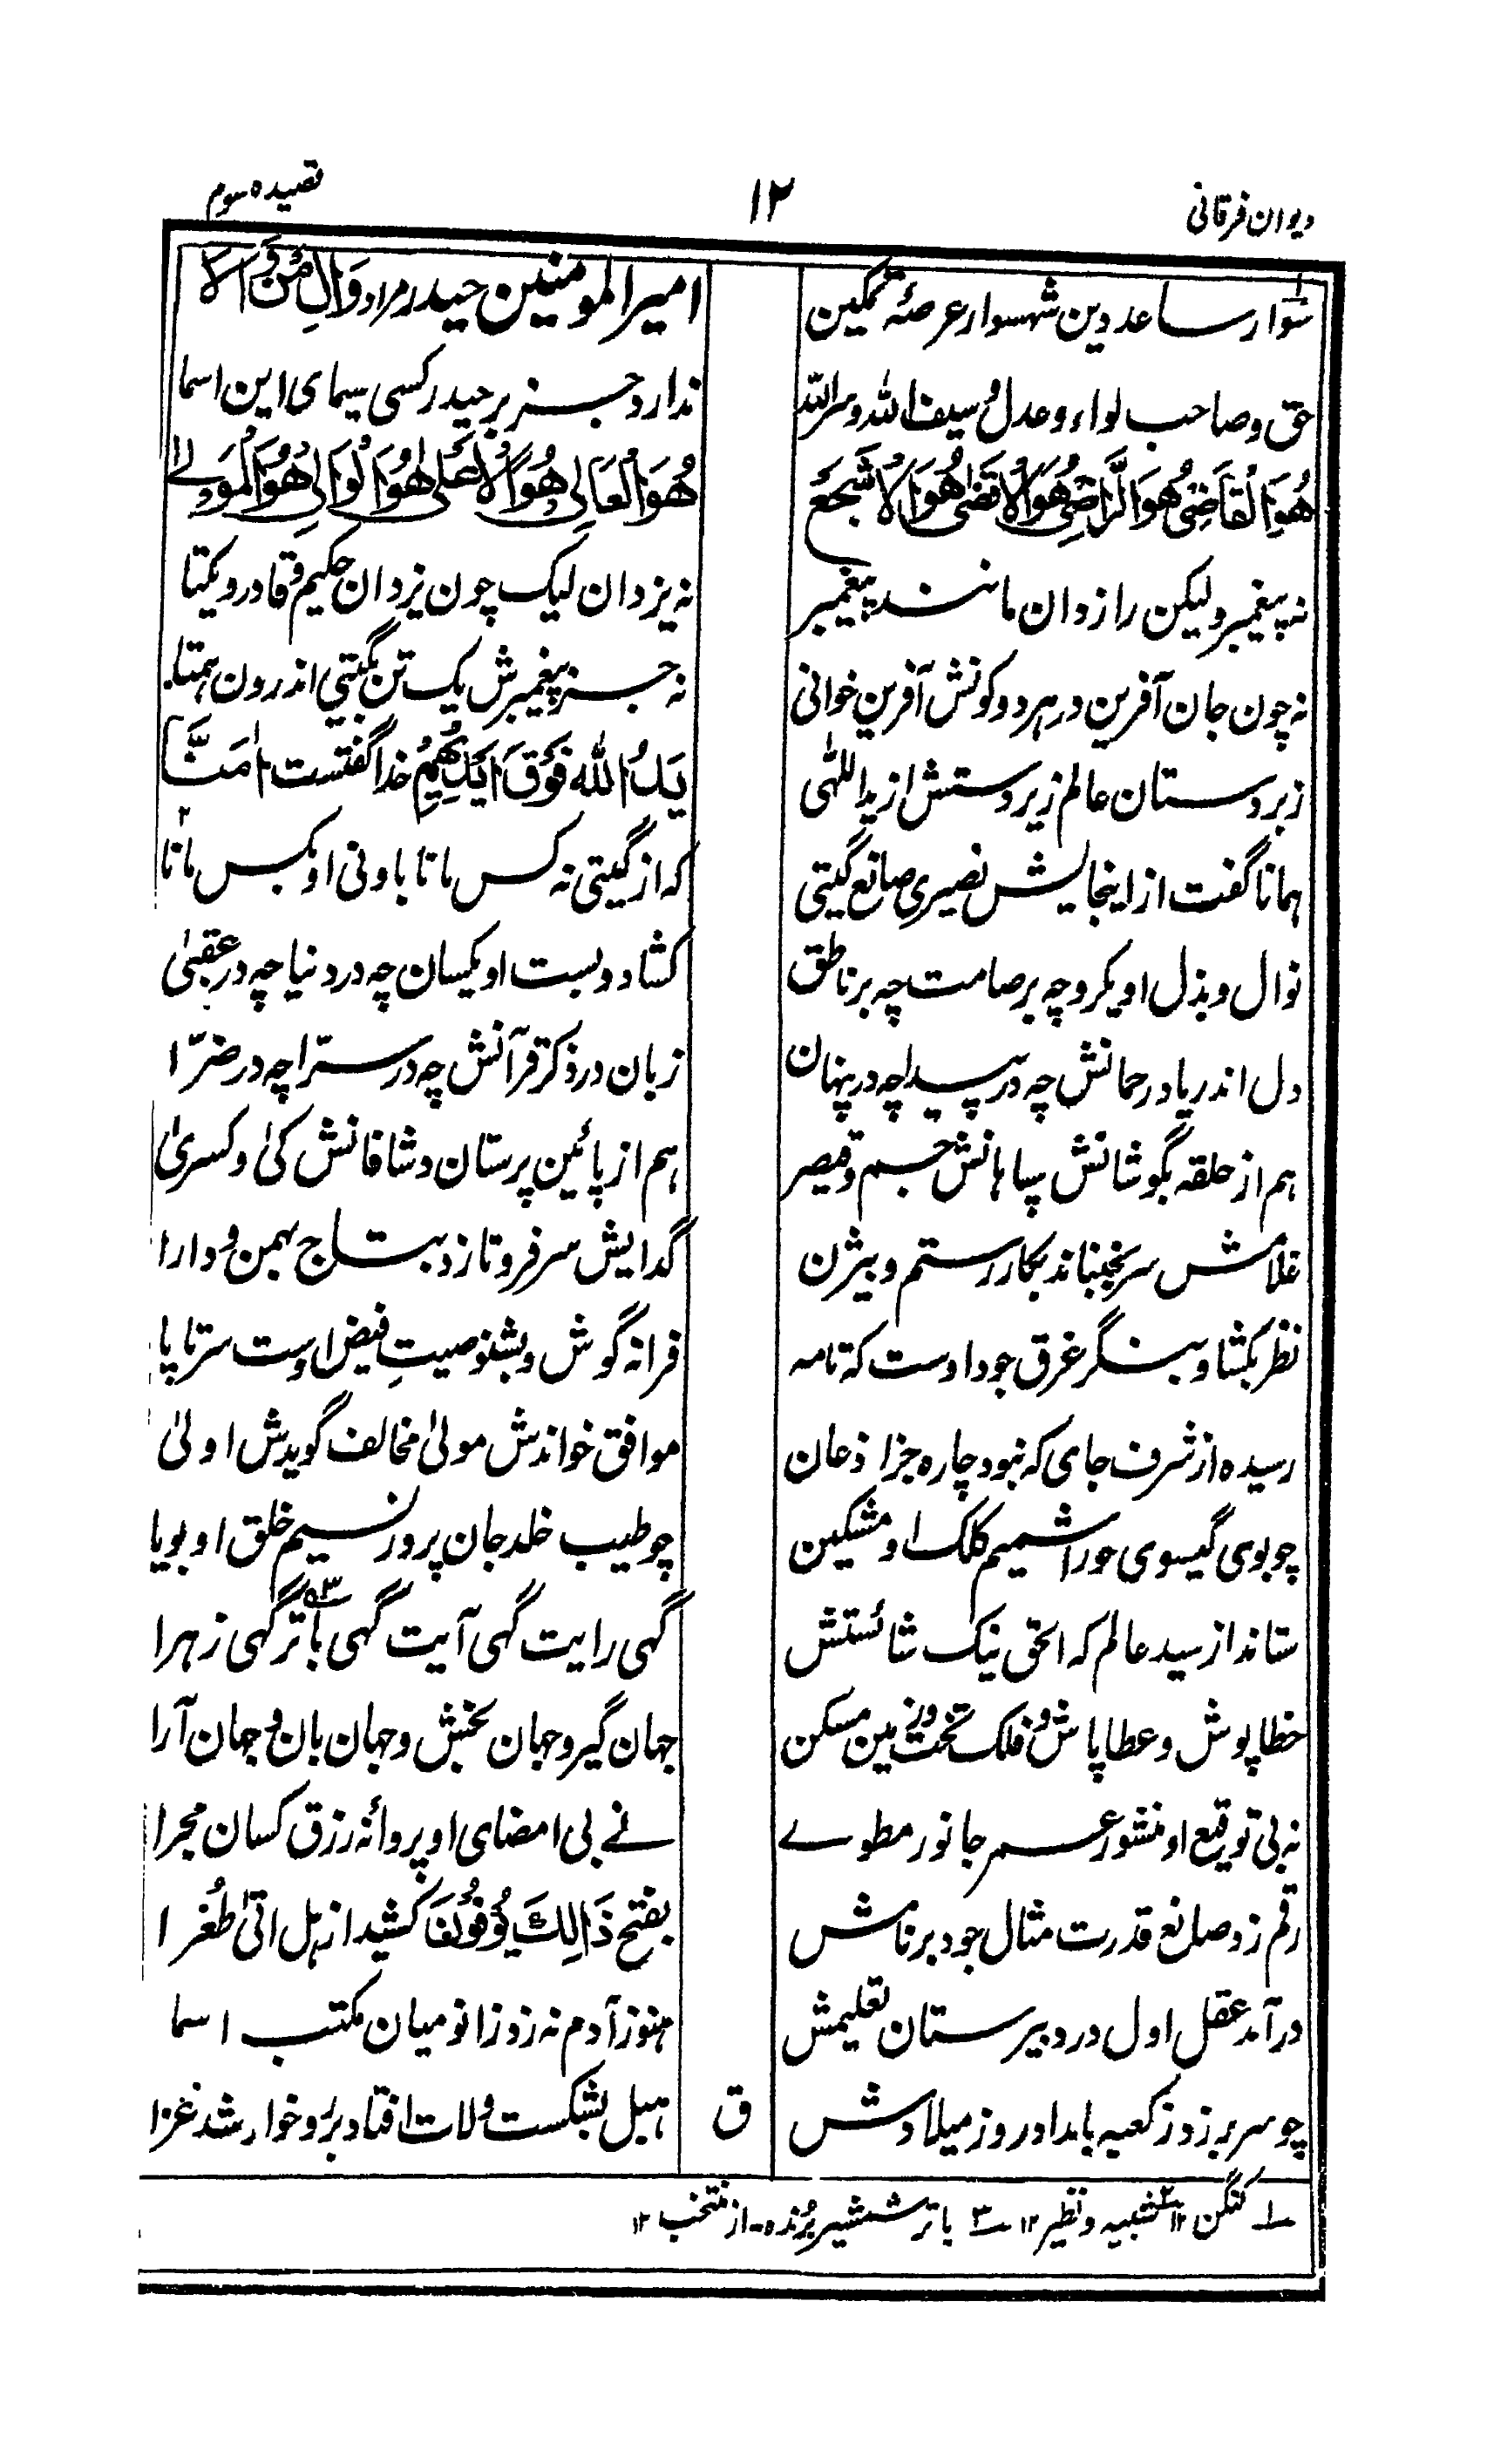 دیوان فرقانی ۱۲ قصیده سوم
سوار ساعد دین شہسوار عرصۂ تمکین امیر المومنین حیدر مراد وال من والا
حق و صاحب لواء و عدل و سیف اللہ و سر اللہ ندارد جز بر حیدر کسی سیمای این اسما
هُوَ الْقَاضِیْ هُوَ الرَّاضِیْ هُوَ الْاَقْضٰی هُوَ الْاَشْجَعْ هُوَ الْعَالِیْ هُوَ الْاَعْلٰی هُوَ الْوَالِیْ هُوَ الْمَوْلٰے
نہ پیغمبر ولیکن رازدان مانند پیغمبر نہ یزدان لیک چون یزدان حکیم و قادر و یکتا
نہ چون جان آفرین در ہر دو کونش آفرین خوانی نہ جز پیغمبرش یک تن بگیتی اندرون ہمتا
زبردستان عالم زیردستش از یداللٰہی یَدُ اللّٰه فَوْقَ اَیْدِیْهِمْ خدا گفتست اٰمَنَّا
ہمانا گفت از اینجایش نصیری صانع گیتی کہ از گیتی نہ کس مانا با و نی او بکس مانا ۲
نوال و بذل او یکرو چہ بر صامت چہ بر ناطق کشاد و بست او یکسان چہ در دنیا چہ در عقبیٰ
دل اندر یاد رحمانش چہ در پیدا چہ در پنہان زبان در ذکر قرآنش چہ در سرّا چہ در ضرّا
ہم از حلقہ بگوشانش سپاہانش جم و قیصر ہم از پائین پرستان و شاقانش کی و کسریٰ
غلامش سر نجنباند بکار رستم و بیژن گدایش سر فرو نازد بتاج بہمن و دارا
نظر بکشا و بنگر غرق جود اوست کہ تا مہ فرا نہ گوش و بشنو صیتِ فیض اوست سرتاپا
رسیدہ از شرف جای کہ نبود چارہ جز اذعان موافق خواندش مولیٰ مخالف گویدش اولیٰ
چو بوی گیسوی حورا شمیم کلک او مشکین چو طیب خلد جان پرور نسیم خلق او بویا
ستاند از سید عالم کہ الحق نیک شائستش گہی رایت گہی آیت گہی باتر ۳ گہی زہرا
خطاپوش و عطاپاش و فلک تخت و زمین مسکن جہان گیر و جہان بخش و جہان بان و جہان آرا
نہ بی توقیع او منشور عمر جانور مطوے نے بی امضای او پروانۂ رزق کسان مجرا
رقم زد صانع قدرت مثال جود بر نامش بفتح ذَالِکَ یُوْفُوْنَ کشید از ہل اتیٰ طُغرا
درآمد عقل اول در دبیرستان تعلیمش ہنوز آدم نہ زد زانو میان مکتب اسما
چو سر بر زد ز کعبہ بامداد روز میلادش ق ہبل بشکست و لات افتاد بر رو خوار شد عزا
۱ کنگن ۱۲ ۲ تشبیہ و نظیر ۱۲ ۳ باتر شمشیر بُرندہ - از منتخب ۱۲